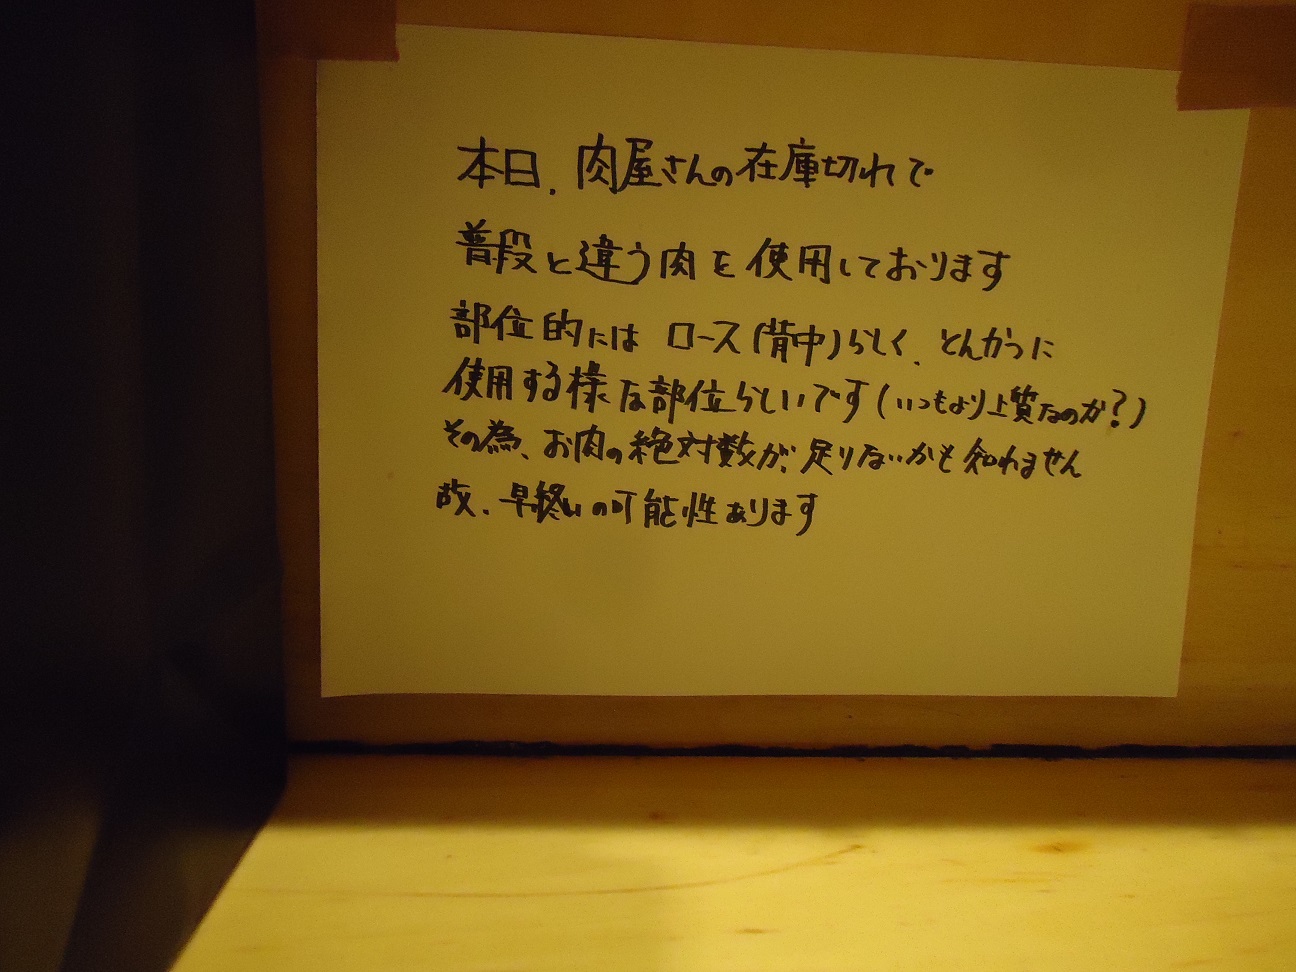 本日、肉屋さんの在庫切れで
普段と違う肉を使用しております
部位的には ロース(背中)らしく、とんかつに
使用する様な部位らしいです(いつもより上質なのか?)
その為、お肉の絶対数が、足りないかも知れません
故、早終いの可能性あります